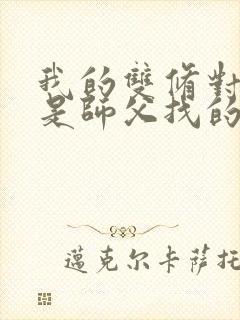 我的雙脩對
是師父找的
邁克尔卡薩托